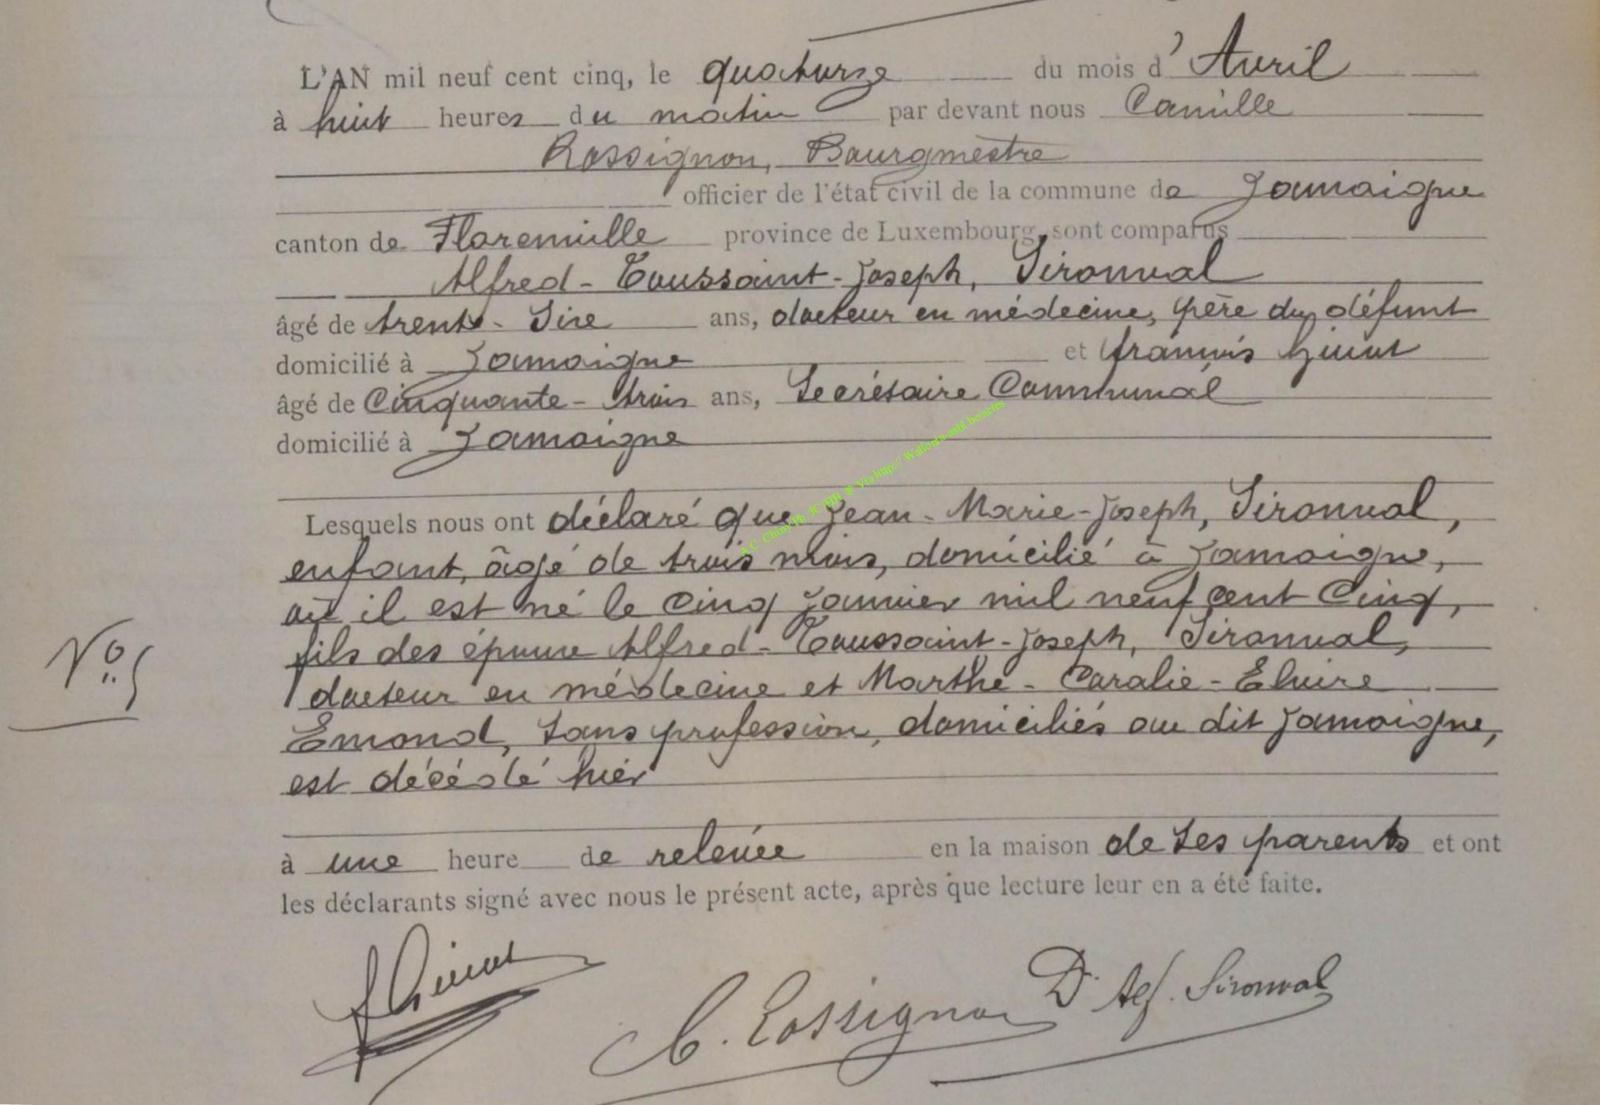 L'AN mil neuf cent cinq, le quatorze du mois d'Avril
à huit heures du matin par devant nous Camille
Rossignon, Bourgmestre
officier de l'état civil de la commune de Jamoigne
canton de Florenville province de Luxembourg, sont comparus
Alfred-Toussaint-Joseph, Sironval
âgé de trente-Six ans, docteur en médecine, père du défunt
domicilié à Jamoigne et françois
âgé de Cinquante-trois ans, Secrétaire Communal
domicilié à Jamoigne
Lesquels nous ont déclaré que Jean-Marie-Joseph, Sironval,
enfant, âgé de trois mois, domicilié à Jamoigne,
où il est né le cinq Janvier mil neuf cent Cinq,
N° 5
fils des époux Alfred-Toussaint-Joseph, Sironval,
docteur en médecine et Marthe-Coralie-Elvire
Emond, Sans profession, domiciliés au dit Jamoigne,
est décédé hier
à une heure de relevée en la maison de Ses parents et ont
les déclarants signé avec nous le présent acte, après que lecture leur en a été faite.
C. Rossignon Dr Alf. Sironval